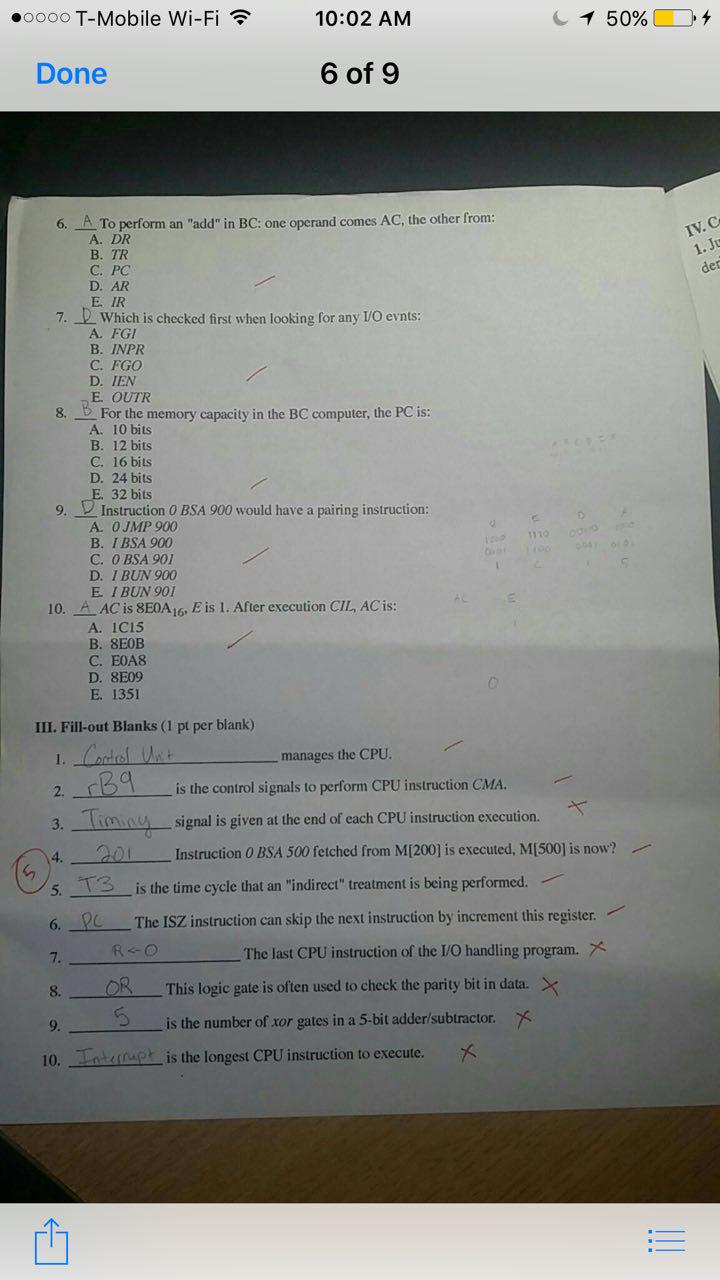 T-Mobile Wi-Fi 10:02 AM 50%
Done 6 of 9
6. A To perform an "add" in BC: one operand comes AC, the other from:
A. DR
B. TR
C. PC
D. AR
E. IR
7. D Which is checked first when looking for any I/O evnts:
A. FGI
B. INPR
C. FGO
D. IEN
E. OUTR
8. B For the memory capacity in the BC computer, the PC is:
A. 10 bits
B. 12 bits
C. 16 bits
D. 24 bits
E. 32 bits
9. D Instruction 0 BSA 900 would have a pairing instruction:
A. 0 JMP 900
B. I BSA 900
C. 0 BSA 901
D. I BUN 900
E. I BUN 901
10. A AC is 8E0A16, E is 1. After execution CIL, AC is:
A. 1C15
B. 8E0B
C. E0A8
D. 8E09
E. 1351
AC E
0
III. Fill-out Blanks (1 pt per blank)
1. Control Unit manages the CPU.
2. rB9 is the control signals to perform CPU instruction CMA.
3. Timing signal is given at the end of each CPU instruction execution.
4. 201 Instruction 0 BSA 500 fetched from M[200] is executed, M[500] is now?
5
5. T3 is the time cycle that an "indirect" treatment is being performed.
6. PC The ISZ instruction can skip the next instruction by increment this register.
7. R←0 The last CPU instruction of the I/O handling program.
8. OR This logic gate is often used to check the parity bit in data.
9. 5 is the number of xor gates in a 5-bit adder/subtractor.
10. Interrupt is the longest CPU instruction to execute.
IV. C
1. Ju
der